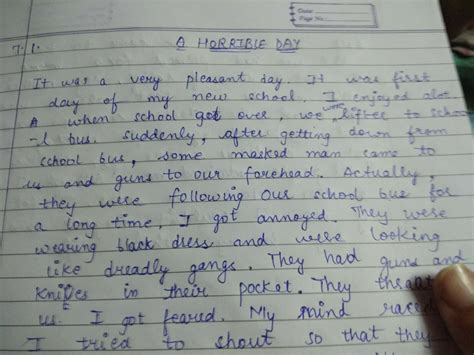 Date:
Page No.:
7.1.
A HORRIBLE DAY
It was a very pleasant day. It was first
day of my new school. I enjoyed alot
A when school got over, we were lifter to schoo
-l bus. suddenly, after getting down from
school bus, some masked man came to
us and guns to our forehead. Actually,
they were following our school bus for
a long time. I got annoyed. They were
wearing black dress and were looking
like dreadly gangs. They had guns and
knives in their pocket. They threat
us. I got feared. My mind raced
I tried to shout so that they